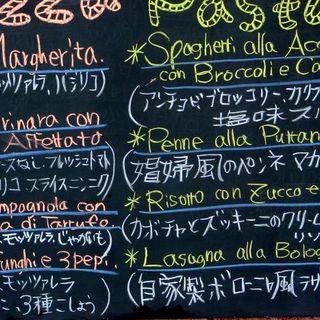 Pasta
Margherita.
モッツァレラ、バジリコ
rinara con
Affettato
スなし、フレッシュトマト
リコ スライスニンニク
mpagnola con
a di Tartufo
モッツァレラ、じゃがいも
unghi e 3 pepi.
モッツァレラ
3種こしょう
*Spaghetti alla Acc
con Broccoli e Ca
(アンチョビブロッコリー、カリフ
塩味ス
*Penne alla Puttan
(娼婦風のペンネ マカ
*Risotto con Zucca e
(カボチャとズッキーニのクリーム
リゾ
*Lasagna alla Bolog
(自家製ボローニャ風ラザ